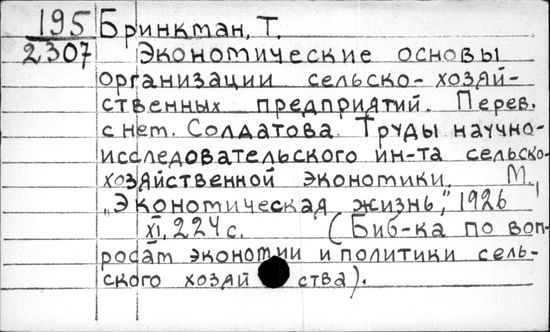 195 Бринкман, Т.
2307 Экономические основы
организации сельско-хозяй-
ственных предприятий. Перев.
с нем. Солдатова. Труды научно-
исследовательского ин-та сельско-
хозяйственной экономики. М.,
„Экономическая жизнь", 1926
XI, 224 с. (Биб-ка по воп-
росам экономии и политики сель-
ского хозяй ства).